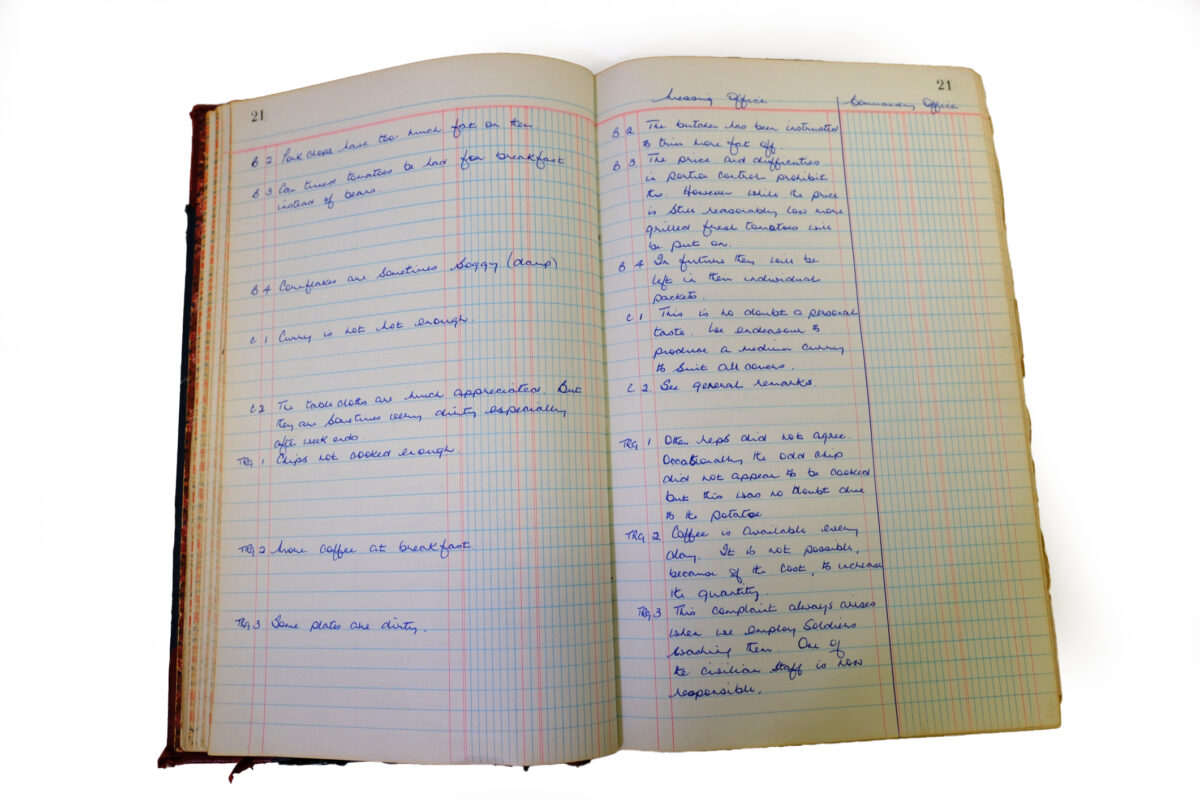 21
B 2 Pork chops have too much fat on them.
B 3 Can tined tomatoes be had for breakfast
instead of beans.
B 4 Cornflakes are sometimes soggy (damp)
C 1 Curry is not hot enough.
C 2 The table cloths are much appreciated. But
they are sometimes very dirty especially
after week ends.
TRG 1 Chips not cooked enough.
TRG 2 More coffee at breakfast.
TRG 3 Some plates are dirty.
21
Messing Office Commanding Office
B 2 The butcher has been instructed
to trim more fat off.
B 3 The price and difficulties
in portion control prohibit
this. However while the price
is still reasonably low more
grilled fresh tomatoes will
be put on.
B 4 In future they will be
left in their individual
packets.
C 1 This is no doubt a personal
taste. We endeavour to
produce a medium curry
to suit all
C 2. See general remarks
TRG 1 Other reps did not agree.
Occationally the odd chip
did not appear to be cooked
but this was no doubt due
to the potatoe
TRG 2 Coffee is available every
day. It is not possible,
because of the cost, to increase
the quantity.
TRG 3 This complaint always arises
when we employ Soldiers
washing them. One of
the civilian staff is now
responsible.